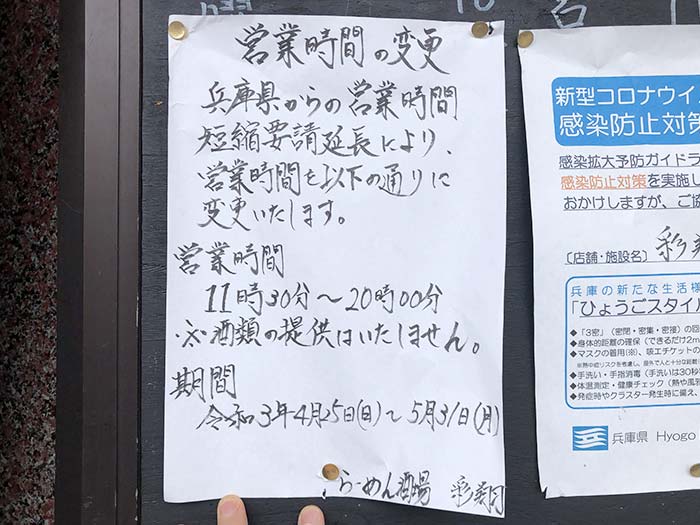 営業時間の変更
兵庫県からの営業時間
短縮要請延長により、
営業時間を以下の通りに
変更いたします。
営業時間
11時30分〜20時00分
※酒類の提供はいたしません。
期間
令和3年4月25日(日)〜5月31日(月)
らーめん酒場 彩翔
新型コロナウイ
感染防止対策
感染拡大予防ガイドラ
感染防止対策を実施し
おかけしますが、ご協
〔店舗・施設名〕 彩
兵庫の新たな生活様
「ひょうごスタイル
◆「3密」（密閉・密集・密接）の回
◆身体的距離の確保（できるだけ2m
◆マスクの着用(※)、咳エチケットの
◆手洗い・手指消毒（手洗いは30秒
◆体温測定・健康チェック（熱や風邪
◆発症時やクラスター発生時に備え、
兵庫県 Hyogo